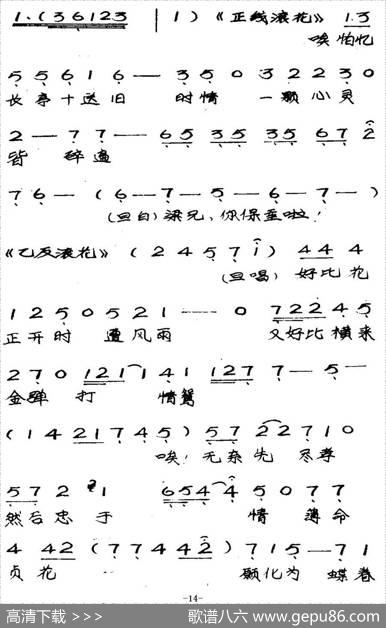 1·(36123 | 1)《正线滚花》 1·3
唉怕忆
5 5 6 1 6 — 3 5 0 3 2 2 3 0
长亭十送旧 时情 一颗心灵
2 — 7 7 — 6 5 3 5 3 5 6 7 2
皆碎遍
7 6 — (6 — 7 — 5 — 6 — 7 —)
(旦白)梁兄,你保重啦!
《乙反滚花》(2 4 5 7 1) 4 4 4
(旦唱)好比花
1 2 5 0 5 2 1 — — 0 7 2 2 2 4 5
正开时 遭风雨 又好比横来
2 7 0 1 2 1 1 4 1 1 2 7 7 — 5 —
金弹 打 情鸳
(1 4 2 1 7 4 5) 5 7 2 2 7 1 0
唉!无奈先尽孝
5 7 2 2 1 6 5 4 4 5 0 7 7
然后忠于 情 薄命
4 4 2 (7 7 4 4 2) 7 1 5 — 7 1
贞花 愿化为 蝶春
-14-
高清下载 >>> 歌谱八六 www.gepu86.com